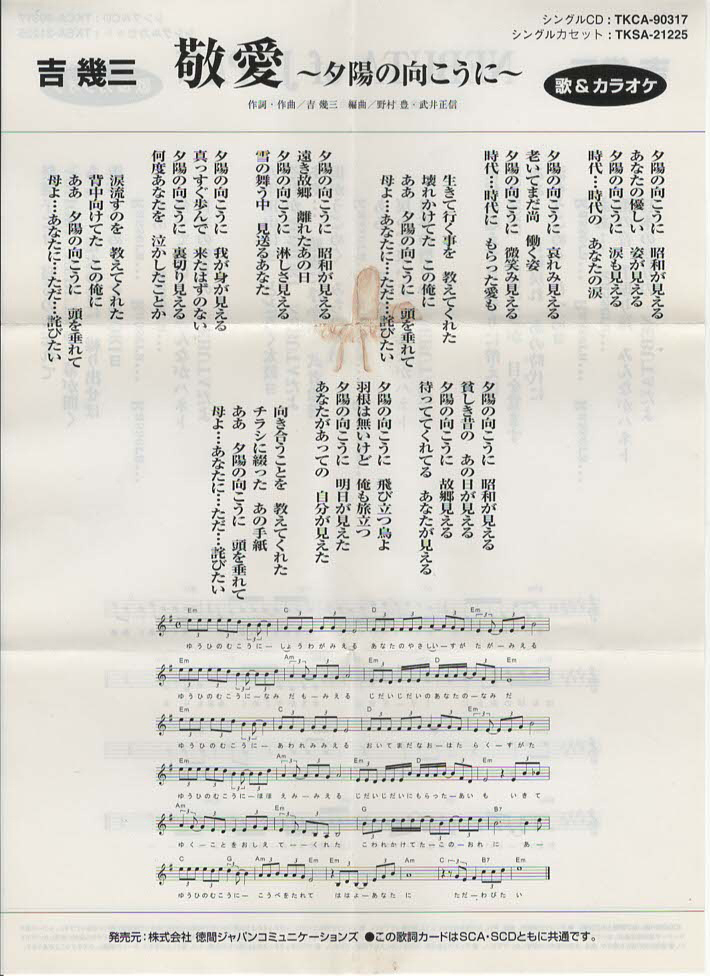 シングルCD：TKCA-90317
シングルカセット：TKSA-21225
吉 幾三
敬愛 ～夕陽の向こうに～
歌＆カラオケ
作詞・作曲／吉 幾三　編曲／野村 豊・武井正信
夕陽の向こうに　昭和が見える
あなたの優しい　姿が見える
夕陽の向こうに　涙も見える
時代…時代の　あなたの涙
夕陽の向こうに　哀れみ見える
老いてまだ尚　働く姿
夕陽の向こうに　微笑み見える
時代…時代に　もらった愛も
生きて行く事を　教えてくれた
壊れかけてた　この俺に
ああ　夕陽の向こうに　頭を垂れて
母よ…あなたに…ただ…詫びたい
夕陽の向こうに　昭和が見える
遠き故郷　離れたあの日
夕陽の向こうに　淋しさ見える
雪の舞う中　見送るあなた
夕陽の向こうに　我が身が見える
真っすぐ歩んで　来たはずのない
夕陽の向こうに　裏切り見える
何度あなたを　泣かしたことか
涙流すのを　教えてくれた
背中向けてた　この俺に
ああ　夕陽の向こうに　頭を垂れて
母よ…あなたに…ただ…詫びたい
夕陽の向こうに　昭和が見える
貧しき昔の　あの日が見える
夕陽の向こうに　故郷見える
待っててくれてる　あなたが見える
夕陽の向こうに　飛び立つ鳥よ
羽根は無いけど　俺も旅立つ
夕陽の向こうに　明日が見えた
あなたがあっての　自分が見えた
向き合うことを　教えてくれた
チラシに綴った　あの手紙
ああ　夕陽の向こうに　頭を垂れて
母よ…あなたに…ただ…詫びたい
Em C D Em
ゆうひのむこうに－ しょうわがみえる あなたのやさしい－すが たが－みえる
Em Am D Em
ゆうひのむこうに－なみ だも－みえる じだいじだいのあなたの－なみ だ
Em C D Em
ゆうひのむこうに－ あわれみみえる おいてまだなお－はた らく－すがた
Em Am D Em
ゆうひのむこうに－ほほ えみ－みえる じだいじだいにもらった－あい も いきて
Am Em G B7
ゆく－ことをおしえ て－－くれた こわれかけてた－この－おれ に あ－
C G Am Em Em Am C B7 Em
ゆうひのむこうに－ こうべをたれて ははよ－あなた に ただ－わびたい
発売元：株式会社 徳間ジャパンコミュニケーションズ ●この歌詞カードはSCA・SCDともに共通です。